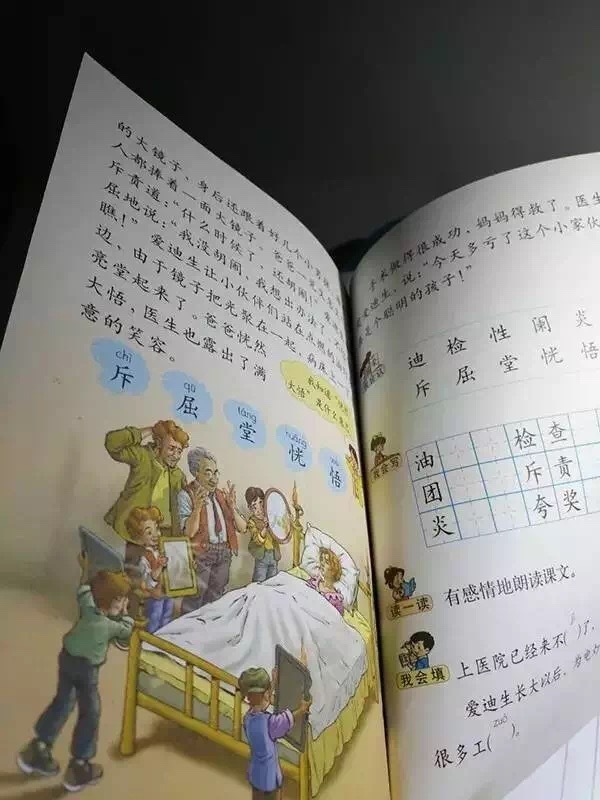 的大镜子，身后还跟着好几个小男孩
人都捧着一面大镜子。爸爸一见
斥责道：“什么时候了，还胡闹！”
屈地说：“我没胡闹，我想出办法了
瞧！”爱迪生让小伙伴们站在点燃的
边，由于镜子把光聚在一起，病床上
亮堂起来了。爸爸恍然
大悟，医生也露出了满
意的笑容。
我知道“
大悟”是什么意
chì qū táng huǎng
斥 屈 堂 恍 悟
手术做得很成功，妈妈得救了。医生
爱迪生，说：“今天多亏了这个小家伙
生个聪明的孩子！”
迪 检 性 闹 炎
斥 屈 堂 恍 悟
我会写
油 检查
团 斥责
炎 夸奖
读一读
有感情地朗读课文。
我会填
上医院已经来不( )了，
爱迪生长大以后，
zuò
很多工( )。